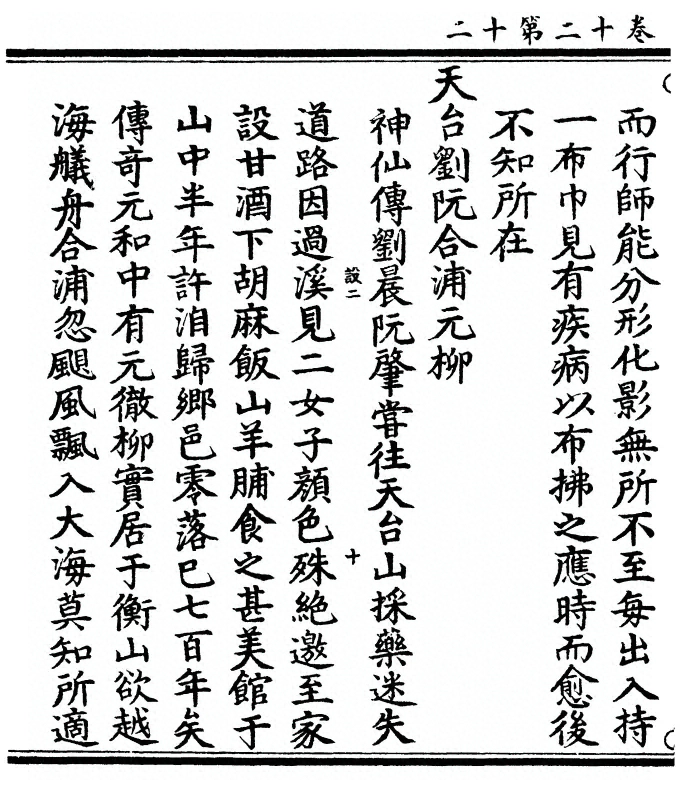 卷十二第十二
而行師能分形化影無所不至每出入持
一布巾見有疾病以布拂之應時而愈後
不知所在
天台劉阮合浦元柳
神仙傳劉晨阮肇甞往天台山採藥迷失
道路因過溪見二女子顔色殊絶邀至家
設二
十
設甘酒下胡麻飯山羊脯食之甚美館于
山中半年許洎歸鄉邑零落已七百年矣
傳竒元和中有元徹柳實居于衡山欲越
海艤舟合浦忽颶風飄入大海莫知所適